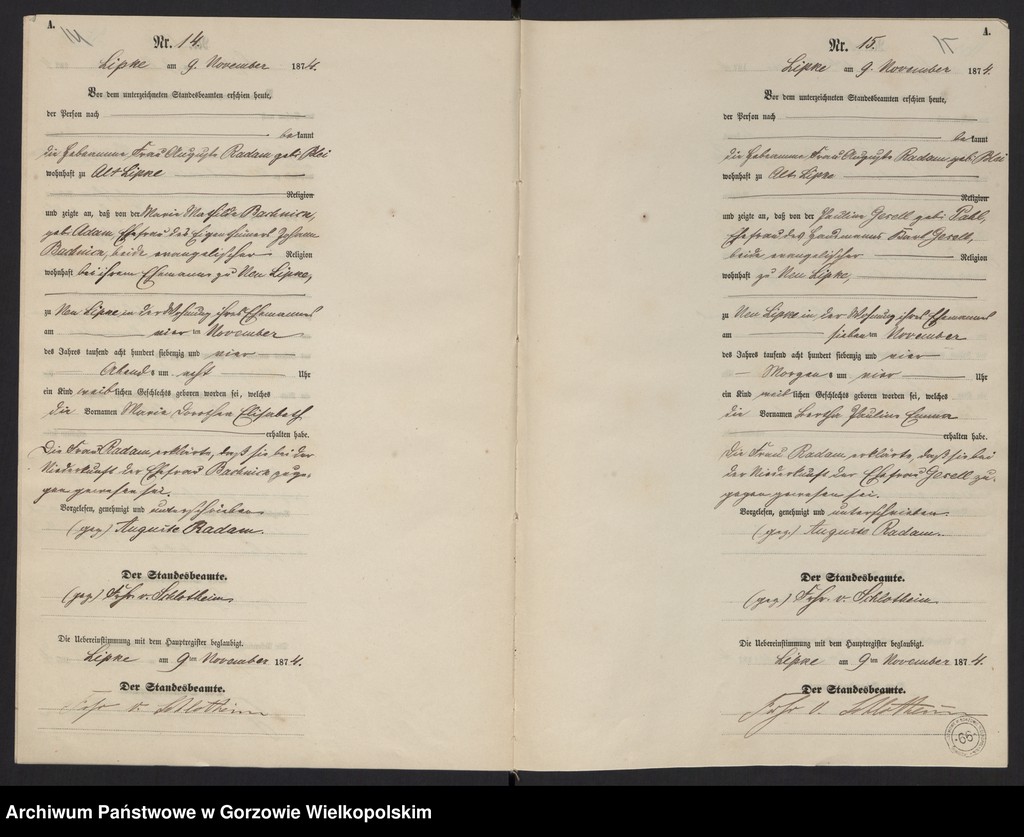 A.
14
Nr. 14.
Lipke am 9. November 1874.
Vor dem unterzeichneten Standesbeamten erschien heute,
der Person nach
bekannt
die Hebeamme Frau Auguste Radam geb.
wohnhaft zu Alt Lipke
Religion
und zeigte an, daß von der Marie Mathilde Bachnick,
geb. Adam, Ehefrau des Eigenthümers Johann
Bachnick, beide evangelischer Religion
wohnhaft bei ihrem Ehemanne zu Neu Lipke,
zu Neu Lipke in der Wohnung ihres Ehemannes
am vierten November
des Jahres tausend acht hundert siebenzig und vier
Abends um acht Uhr
ein Kind weiblichen Geschlechts geboren worden sei, welches
die Vornamen Marie Dorothea Elisabeth
erhalten habe.
Die Frau Radam erklärte, daß sie bei der
Niederkunft der Ehefrau Bachnick zuge-
gen gewesen sei.
Vorgelesen, genehmigt und unterschrieben
(gez.) Auguste Radam.
Der Standesbeamte.
(gez.) Frhr. v. Schlotheim
Die Uebereinstimmung mit dem Hauptregister beglaubigt.
Lipke am 9ten November 1874.
Der Standesbeamte.
Frhr v. Schlotheim
A.
15
Nr. 15.
Lipke am 9. November 1874.
Vor dem unterzeichneten Standesbeamten erschien heute,
der Person nach
bekannt
die Hebeamme Frau Auguste Radam geb.
wohnhaft zu Alt Lipke
Religion
und zeigte an, daß von der Pauline Gesell geb. Pahl,
Ehefrau des Karl Gesell,
beide evangelischer Religion
wohnhaft zu Neu Lipke,
zu Neu Lipke in der Wohnung ihres Ehemannes
am siebenten November
des Jahres tausend acht hundert siebenzig und vier
Morgens um vier Uhr
ein Kind weiblichen Geschlechts geboren worden sei, welches
die Vornamen Bertha Pauline Emma
erhalten habe.
Die Frau Radam erklärte, daß sie bei
der Niederkunft der Ehefrau Gesell zu-
gegen gewesen sei.
Vorgelesen, genehmigt und unterschrieben
(gez.) Auguste Radam.
Der Standesbeamte.
(gez.) Frhr. v. Schlotheim
Die Uebereinstimmung mit dem Hauptregister beglaubigt.
Lipke am 9ten November 1874.
Der Standesbeamte.
Frhr v. Schlotheim
-66-
Archiwum Państwowe w Gorzowie Wielkopolskim